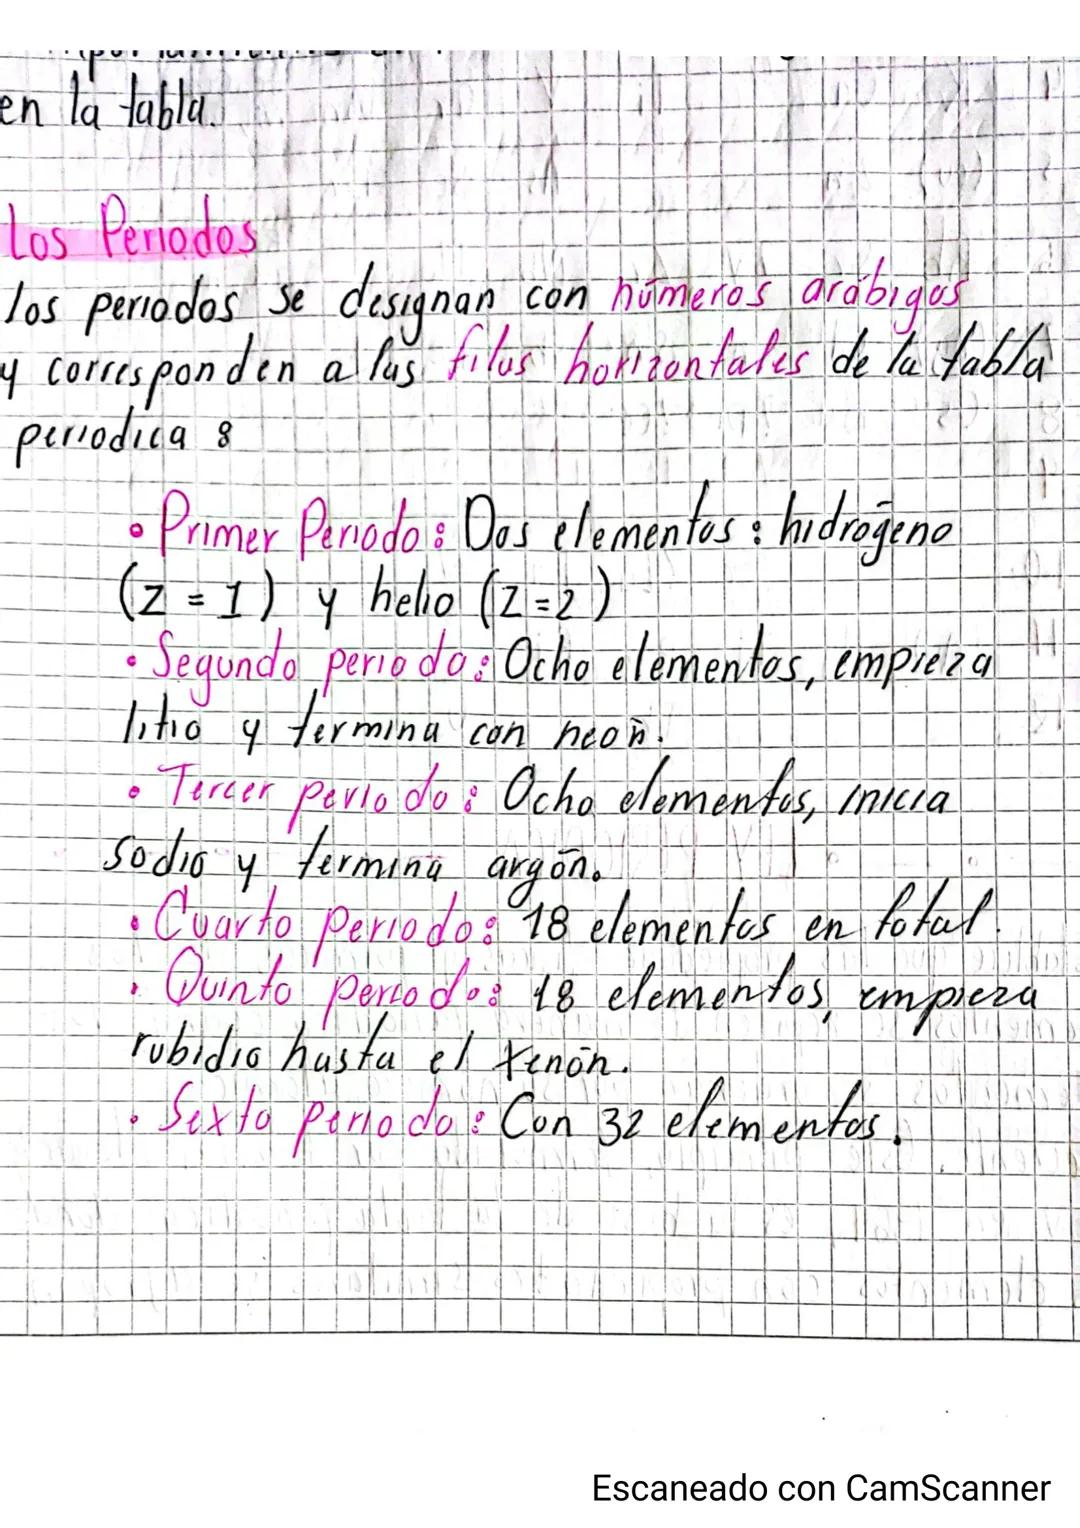 en la tabla.
Los Periodos
los periodos se designan con números arábigos
y corresponden a las filas horizontales de la tabla
periodica :
• Primer Periodo: Dos elementos: hidrógeno
(Z = 1) y helio (Z=2)
• Segundo periodo: Ocho elementos, empieza
litio y termina con neón.
• Tercer periodo: Ocho elementos, inicia
sodio y termina argón.
• Cuarto periodo: 18 elementos en total.
• Quinto periodo: 18 elementos, empieza
rubidio hasta el xenón.
• Sexto periodo: Con 32 elementos.
Escaneado con CamScanner